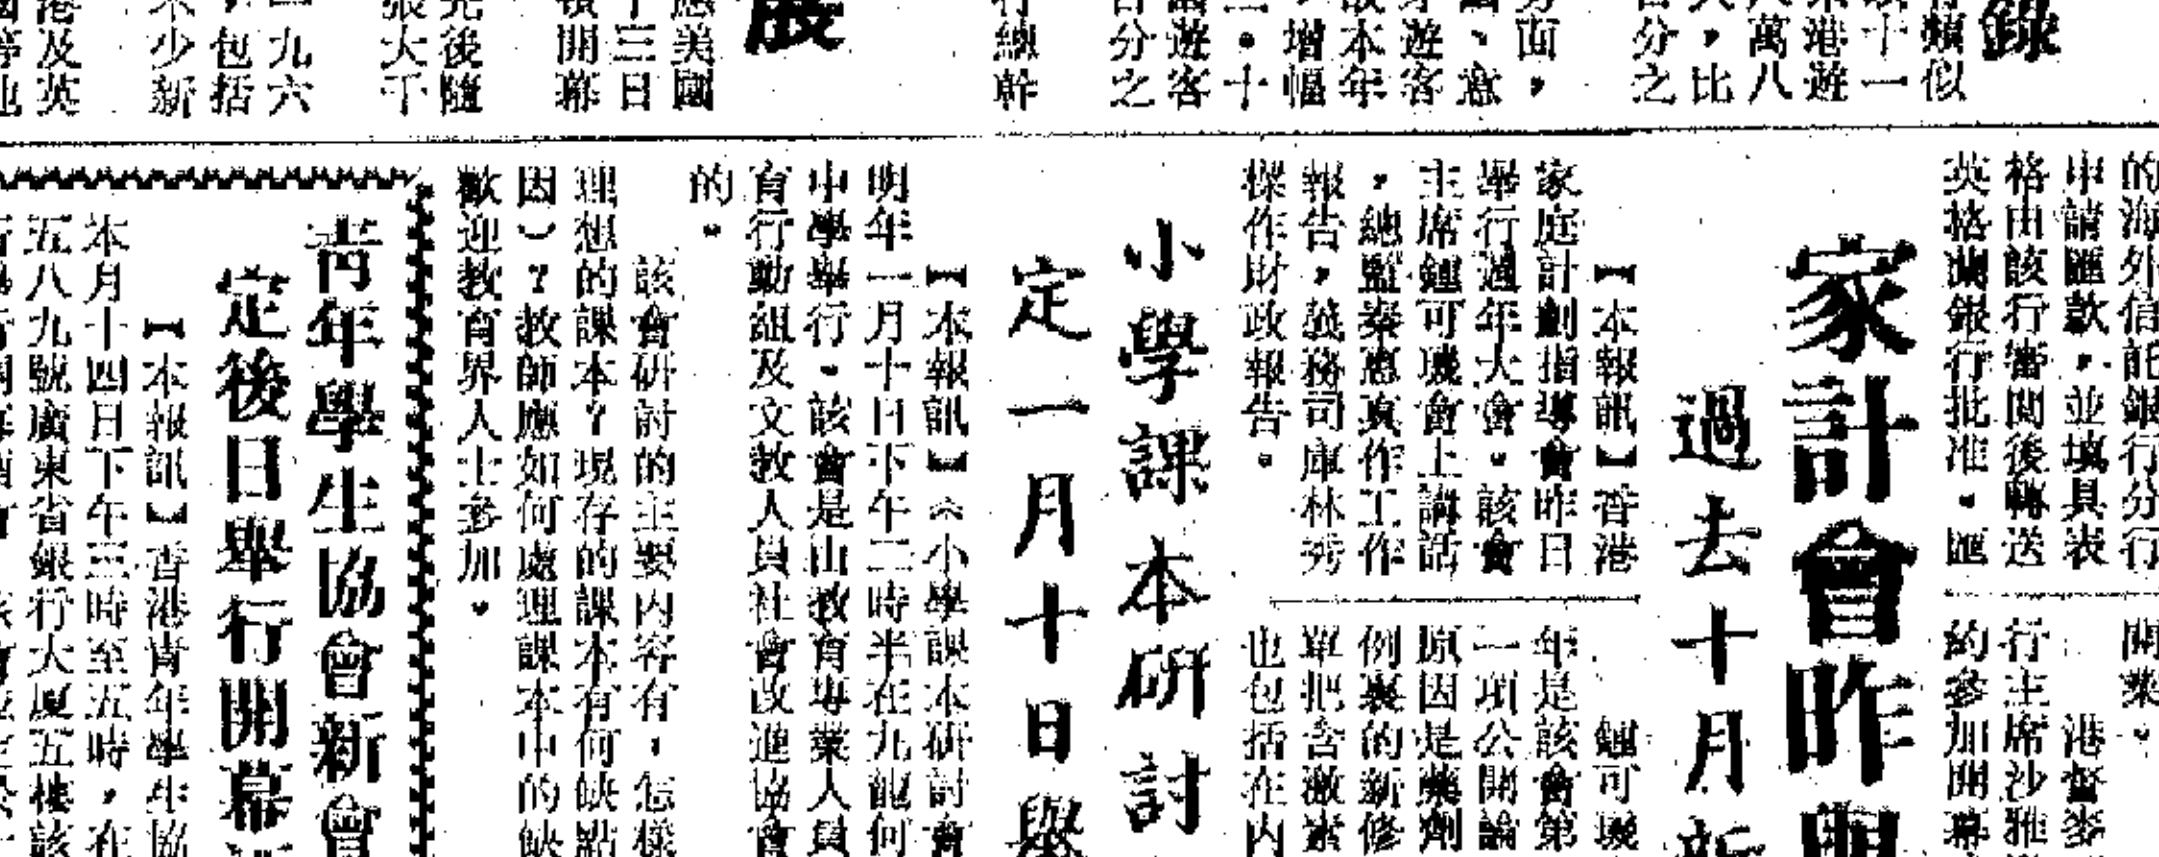 錄
類似
十一
港遊
萬八
，比
分之
面，
、意
遊客
本年
增幅
。十
遊客
分之
總幹
展
美國
三日
開幕
後隨
大千
九六
包括
少新
及英
的海外信託銀行分行
申請匯款，並填具表
格由該行審閱後轉送
英格蘭銀行批准。匯
開業。
港督麥
行主席沙雅
約參加開幕
家計會昨
過去十月新
【本報訊】香港
家庭計劃指導會昨日
舉行週年大會。該會
主席鍾可璣會上講話
，總監秦惠真作工作
報告，義務司庫林秀
操作財政報告。
鍾可璣
年是該會第
一項公開論
原因是藥劑
例裏的新修
單把含激素
也包括在內
小學課本研討
定一月十日舉
【本報訊】︿小學課本研討會
明年一月十日下午二時半在九龍何
中學舉行。該會是由教育專業人員
育行動組及文教人員社會改進協會
的。
該會研討的主要內容有，怎樣
理想的課本？現存的課本有何缺點
因）？教師應如何處理課本中的缺
歡迎教育界人士參加。
青年學生協會新會
定後日舉行開幕
【本報訊】香港青年學生協
本月十四日下午三時至五時，在
五八九號廣東省銀行大廈五樓該